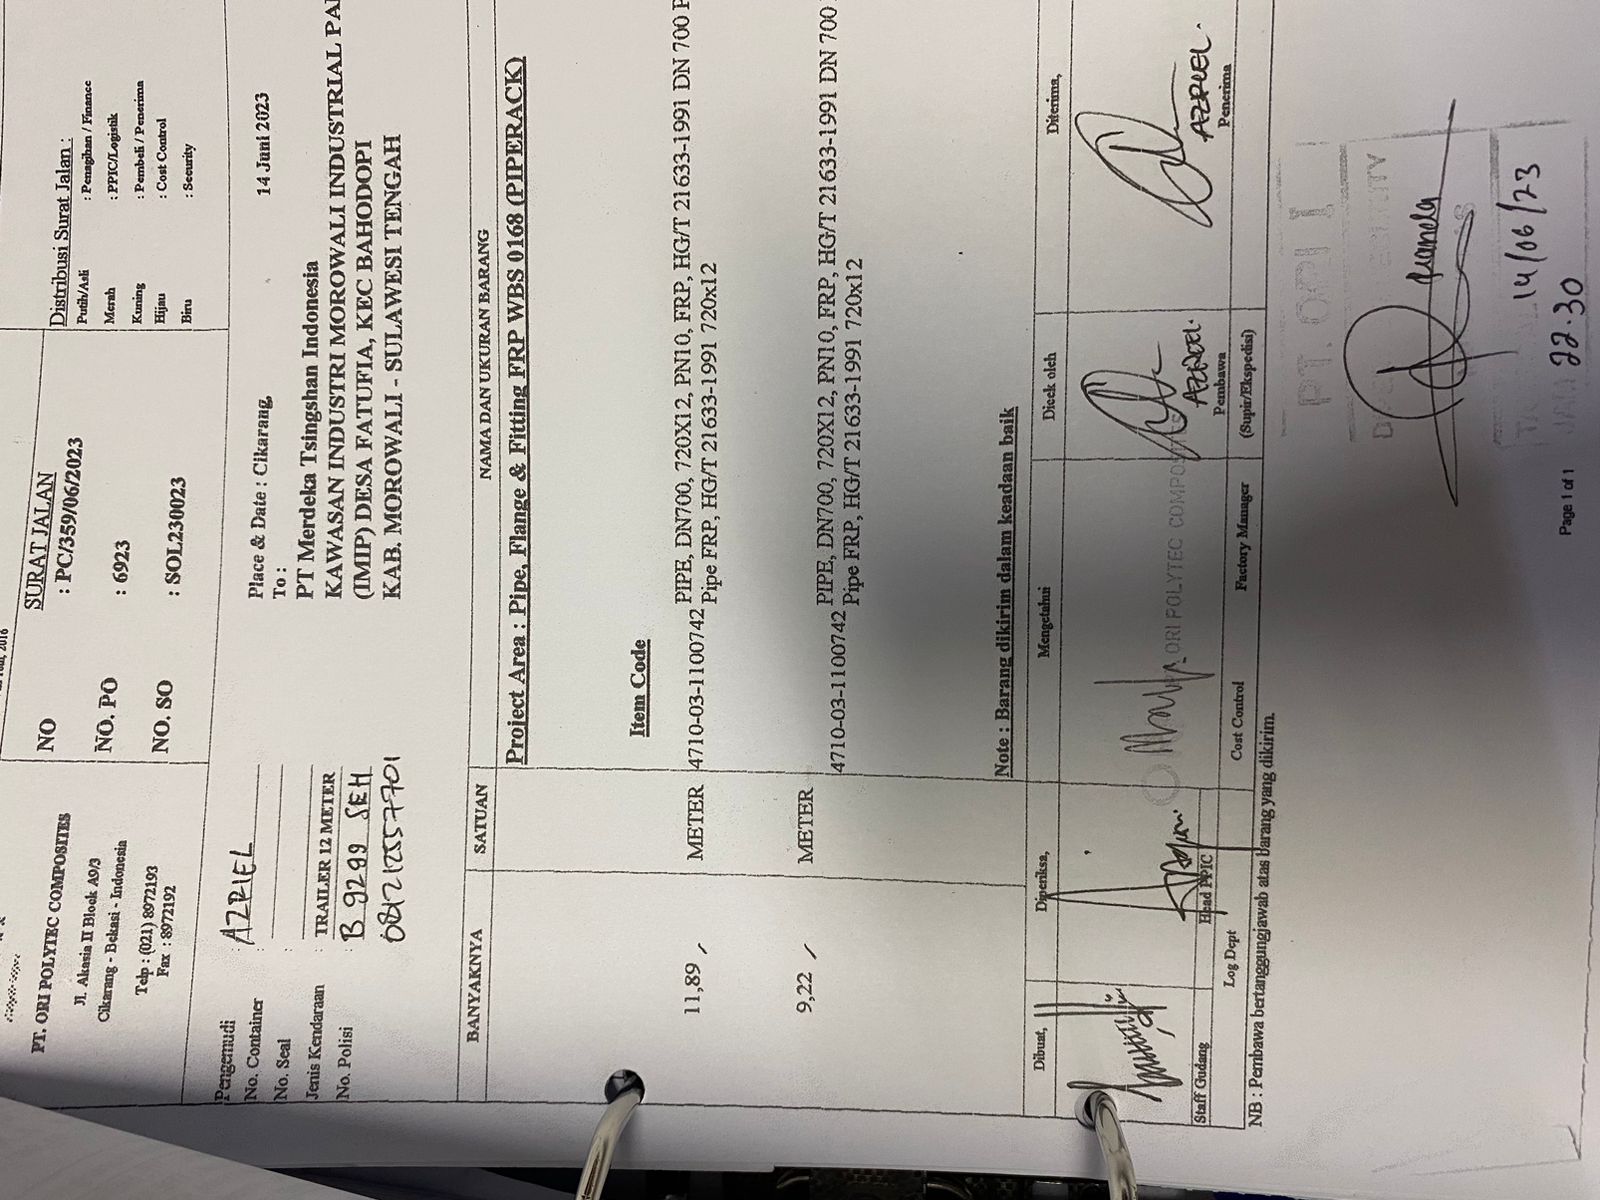 PT. ORI POLYTEC COMPOSITES
Jl. Akasia II Block A9/3
Cikarang - Bekasi - Indonesia
Telp : (021) 8972193
Fax : 8972192
SURAT JALAN
NO : PC/359/06/2023
NO. PO : 6923
NO. SO : SOL230023
Distribusi Surat Jalan :
Putih/Asli : Penagihan / Finance
Merah : PPIC/Logistik
Kuning : Pembeli / Penerima
Hijau : Cost Control
Biru : Security
Pengemudi : AZRIEL
No. Container :
No. Seal :
Jenis Kendaraan : TRAILER 12 METER
No. Polisi : B 9299 SEH
081212557701
Place & Date : Cikarang, 14 Juni 2023
To :
PT Merdeka Tsingshan Indonesia
KAWASAN INDUSTRI MOROWALI INDUSTRIAL PA
(IMIP) DESA FATUFIA, KEC BAHODOPI
KAB. MOROWALI - SULAWESI TENGAH
BANYAKNYA SATUAN NAMA DAN UKURAN BARANG
Project Area : Pipe, Flange & Fitting FRP WBS 0168 (PIPERACK)
Item Code
11,89 METER 4710-03-1100742 PIPE, DN700, 720X12, PN10, FRP, HG/T 21633-1991 DN 700 P
Pipe FRP, HG/T 21633-1991 720x12
9,22 METER 4710-03-1100742 PIPE, DN700, 720X12, PN10, FRP, HG/T 21633-1991 DN 700
Pipe FRP, HG/T 21633-1991 720x12
Note : Barang dikirim dalam keadaan baik
Dibuat, Diperiksa, Mengetahui Dicek oleh Diterima,
ORI POLYTEC COMPOS
AZRIEL. AZRIEL.
Staff Gudang Head PPIC Pembawa Penerima
Log Dept Cost Control Factory Manager (Supir/Ekspedisi)
NB : Pembawa bertanggungjawab atas barang yang dikirim.
PT. OPI I
14/06/23
22.30
Page 1 of 1